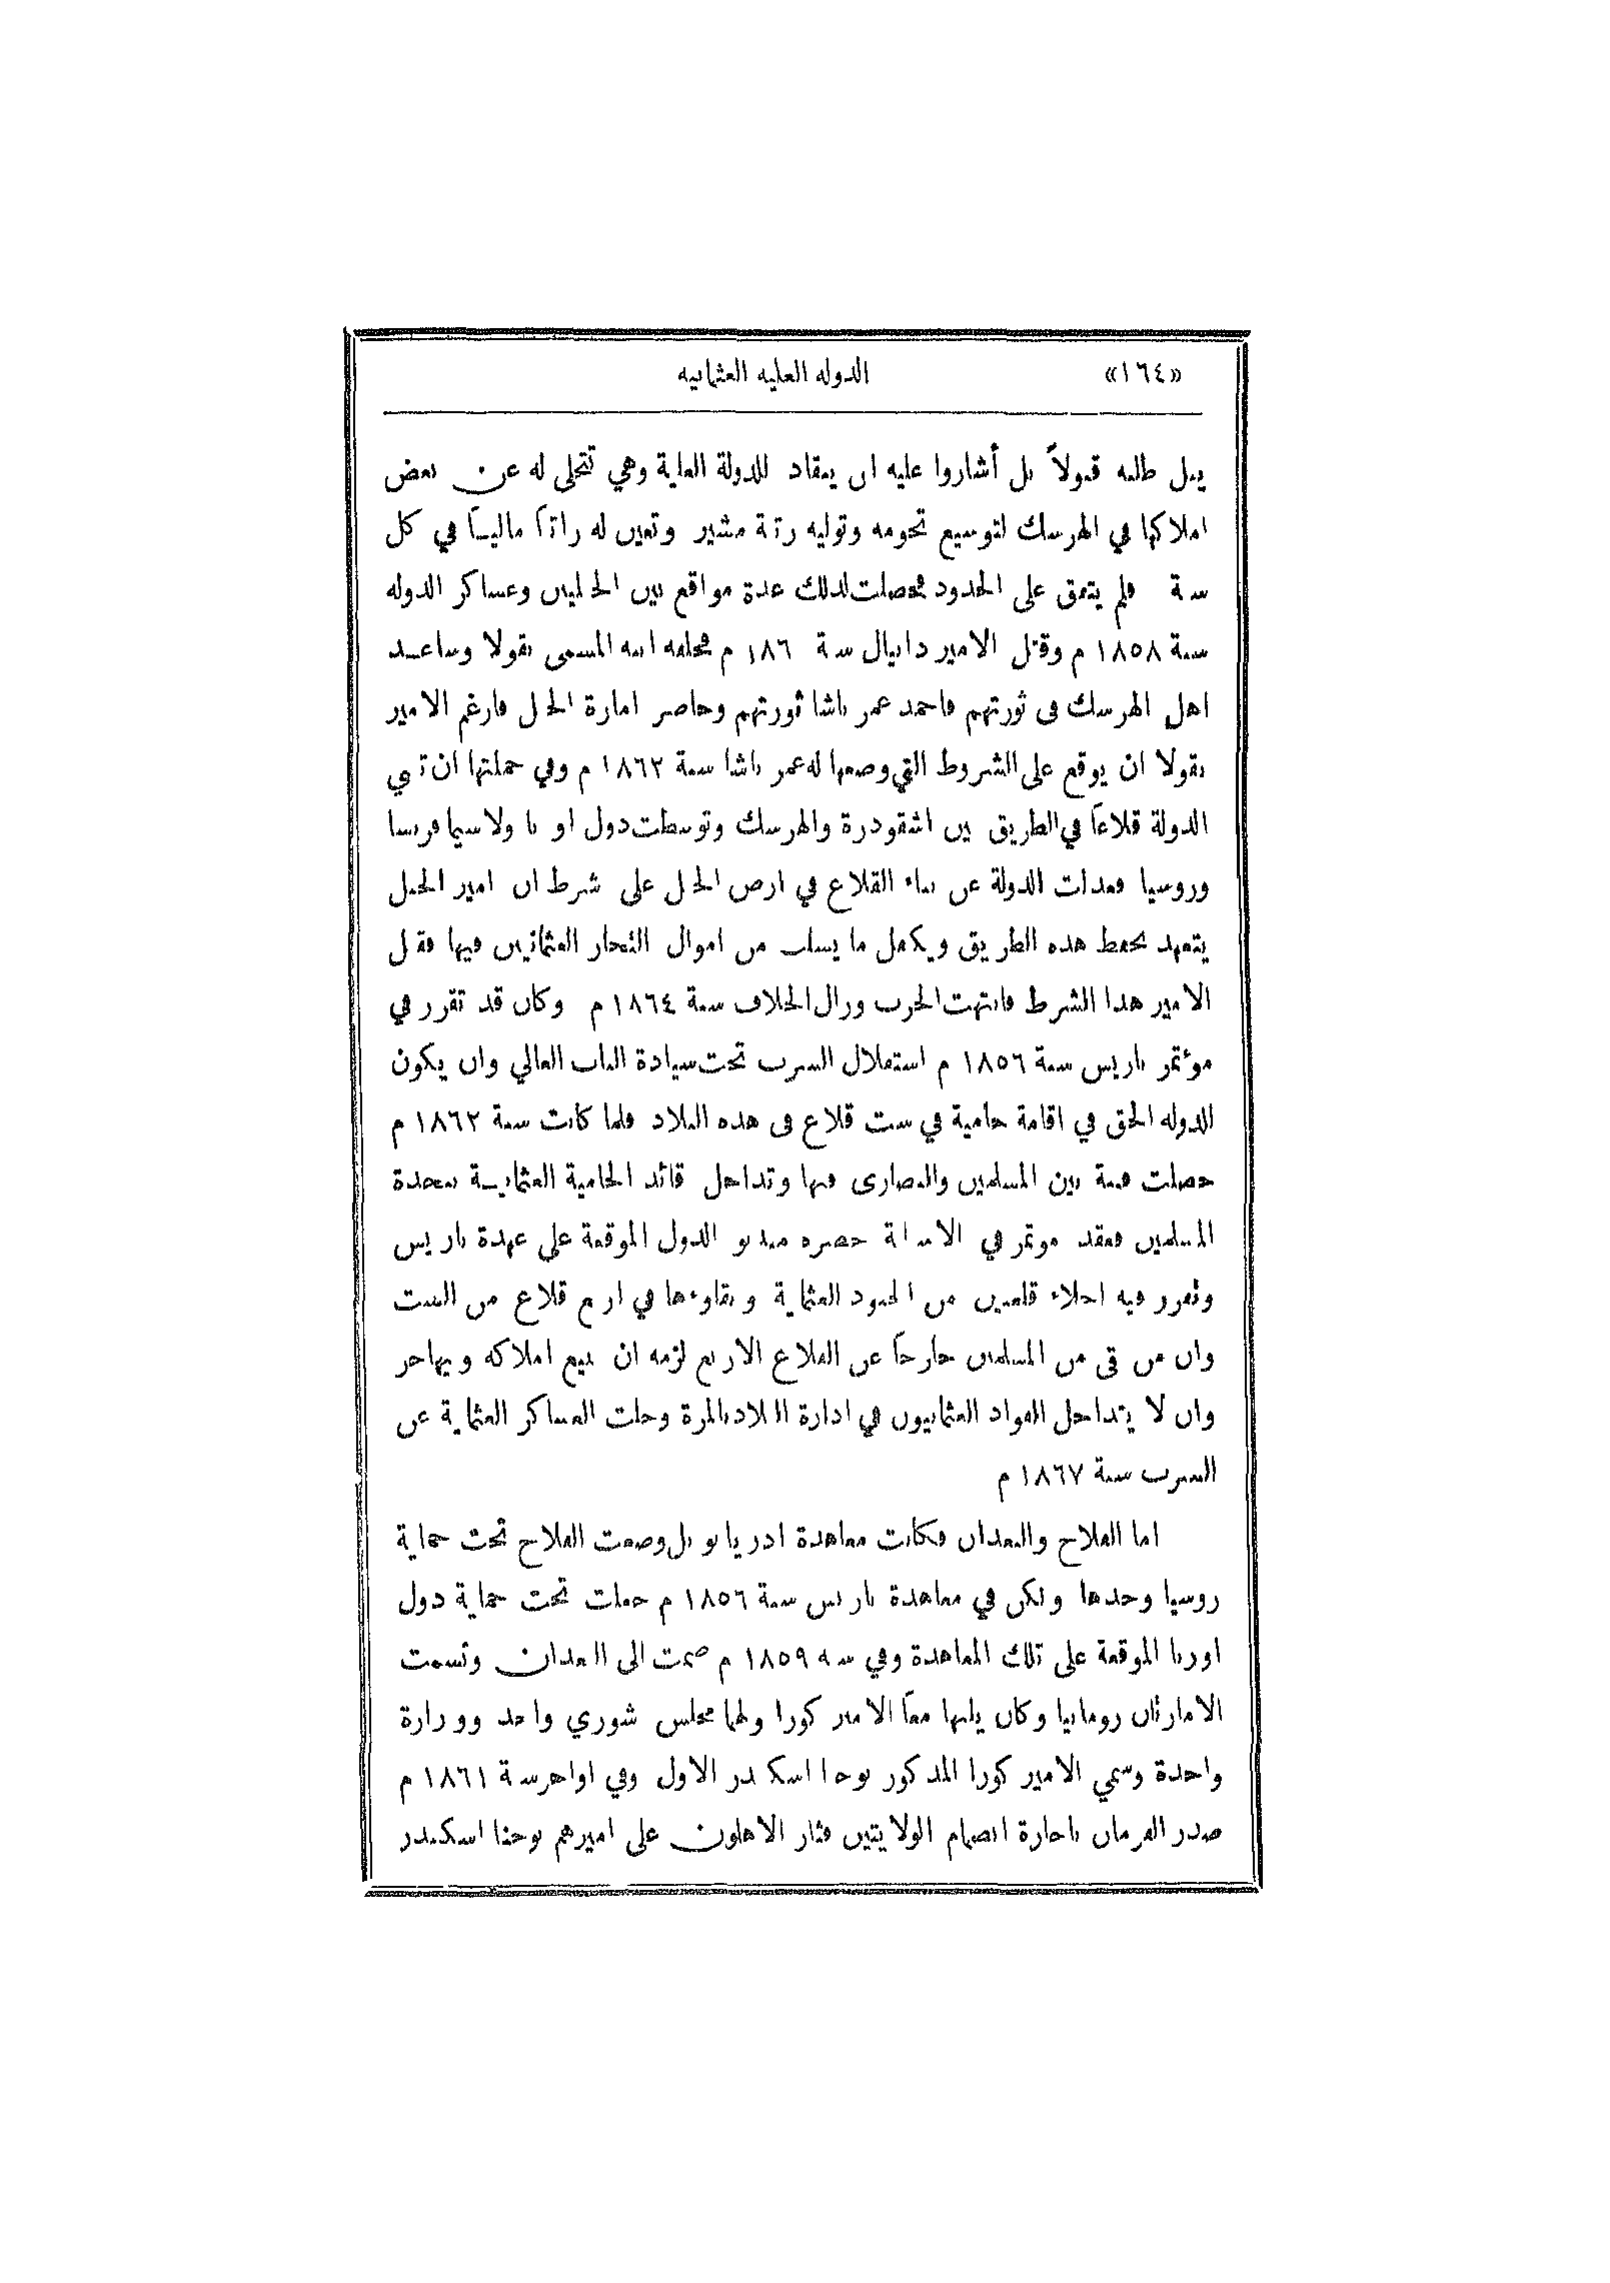 «١٦٤» الدوله العليه العثمانيه
ينل طلبه قبولاً بل أشاروا عليه ان ينقاد للدولة العلية وهي تتخلى له عن بعض
املاكها في الهرسك لتوسيع تخومه وتوليه رتبة مشير وتعين له راتباً مالياً في كل
سنة فلم يتفق على الحدود فحصلت لذلك عدة مواقع بين الجبليين وعساكر الدوله
سنة ١٨٥٨ م وقتل الامير دانيال سنة ١٨٦ م فخلفه ابنه المسمى نقولا وساعد
اهل الهرسك في ثورتهم فاخمد عمر باشا ثورتهم وحاصر امارة الجبل فارغم الامير
نقولا ان يوقع على الشروط التي وضعها له عمر باشا سنة ١٨٦٢ م وفي جملتها ان تبني
الدولة قلاعاً في الطريق بين اشقودرة والهرسك وتوسطت دول اوربا ولاسيما فرنسا
وروسيا فعدلت الدولة عن بناء القلاع في ارض الجبل على شرط ان امير الجبل
يتعهد بحفظ هذه الطريق ويكفل ما يسلب من اموال التجار العثمانيين فيها فقبل
الامير هذا الشرط فانتهت الحرب وزال الخلاف سنة ١٨٦٤ م وكان قد تقرر في
مؤتمر باريس سنة ١٨٥٦ م استقلال السرب تحت سيادة الباب العالي وان يكون
للدوله الحق في اقامة حامية في ست قلاع في هذه البلاد فلما كانت سنة ١٨٦٢ م
حصلت فتنة بين المسلمين والنصارى فيها وتداخل قائد الحامية العثمانية بنجدة
المسلمين فعقد موتمر في الاستانة حضره مندوبو الدول الموقعة على عهدة باريس
وتقرر فيه اخلاء قلعتين من الجنود العثمانية وبقاوءها في اربع قلاع من الست
وان من بقي من المسلمين خارجاً عن القلاع الاربع لزمه ان يبيع املاكه ويهاجر
وان لا يتداخل القواد العثمانيون في ادارة البلاد بالمرة وجلت العساكر العثمانية عن
السرب سنة ١٨٦٧ م
اما الفلاخ والبغدان فكانت معاهدة ادريانوبل وضعت الفلاخ تحت حماية
روسيا وحدها ولكن في معاهدة باريس سنة ١٨٥٦ م جعلت تحت حماية دول
اوربا الموقعة على تلك المعاهدة وفي سنه ١٨٥٩ م ضمت الى البغدان وتسمت
الامارتان رومانيا وكان يليهما معاً الامير كوزا ولهما مجلس شوري واحد ووزارة
واحدة وسمي الامير كوزا المذكور يوحنا اسكندر الاول وفي اواخر سنة ١٨٦١ م
صدر الفرمان باجازة انضمام الولايتين فثار الاهلون على اميرهم يوحنا اسكندر